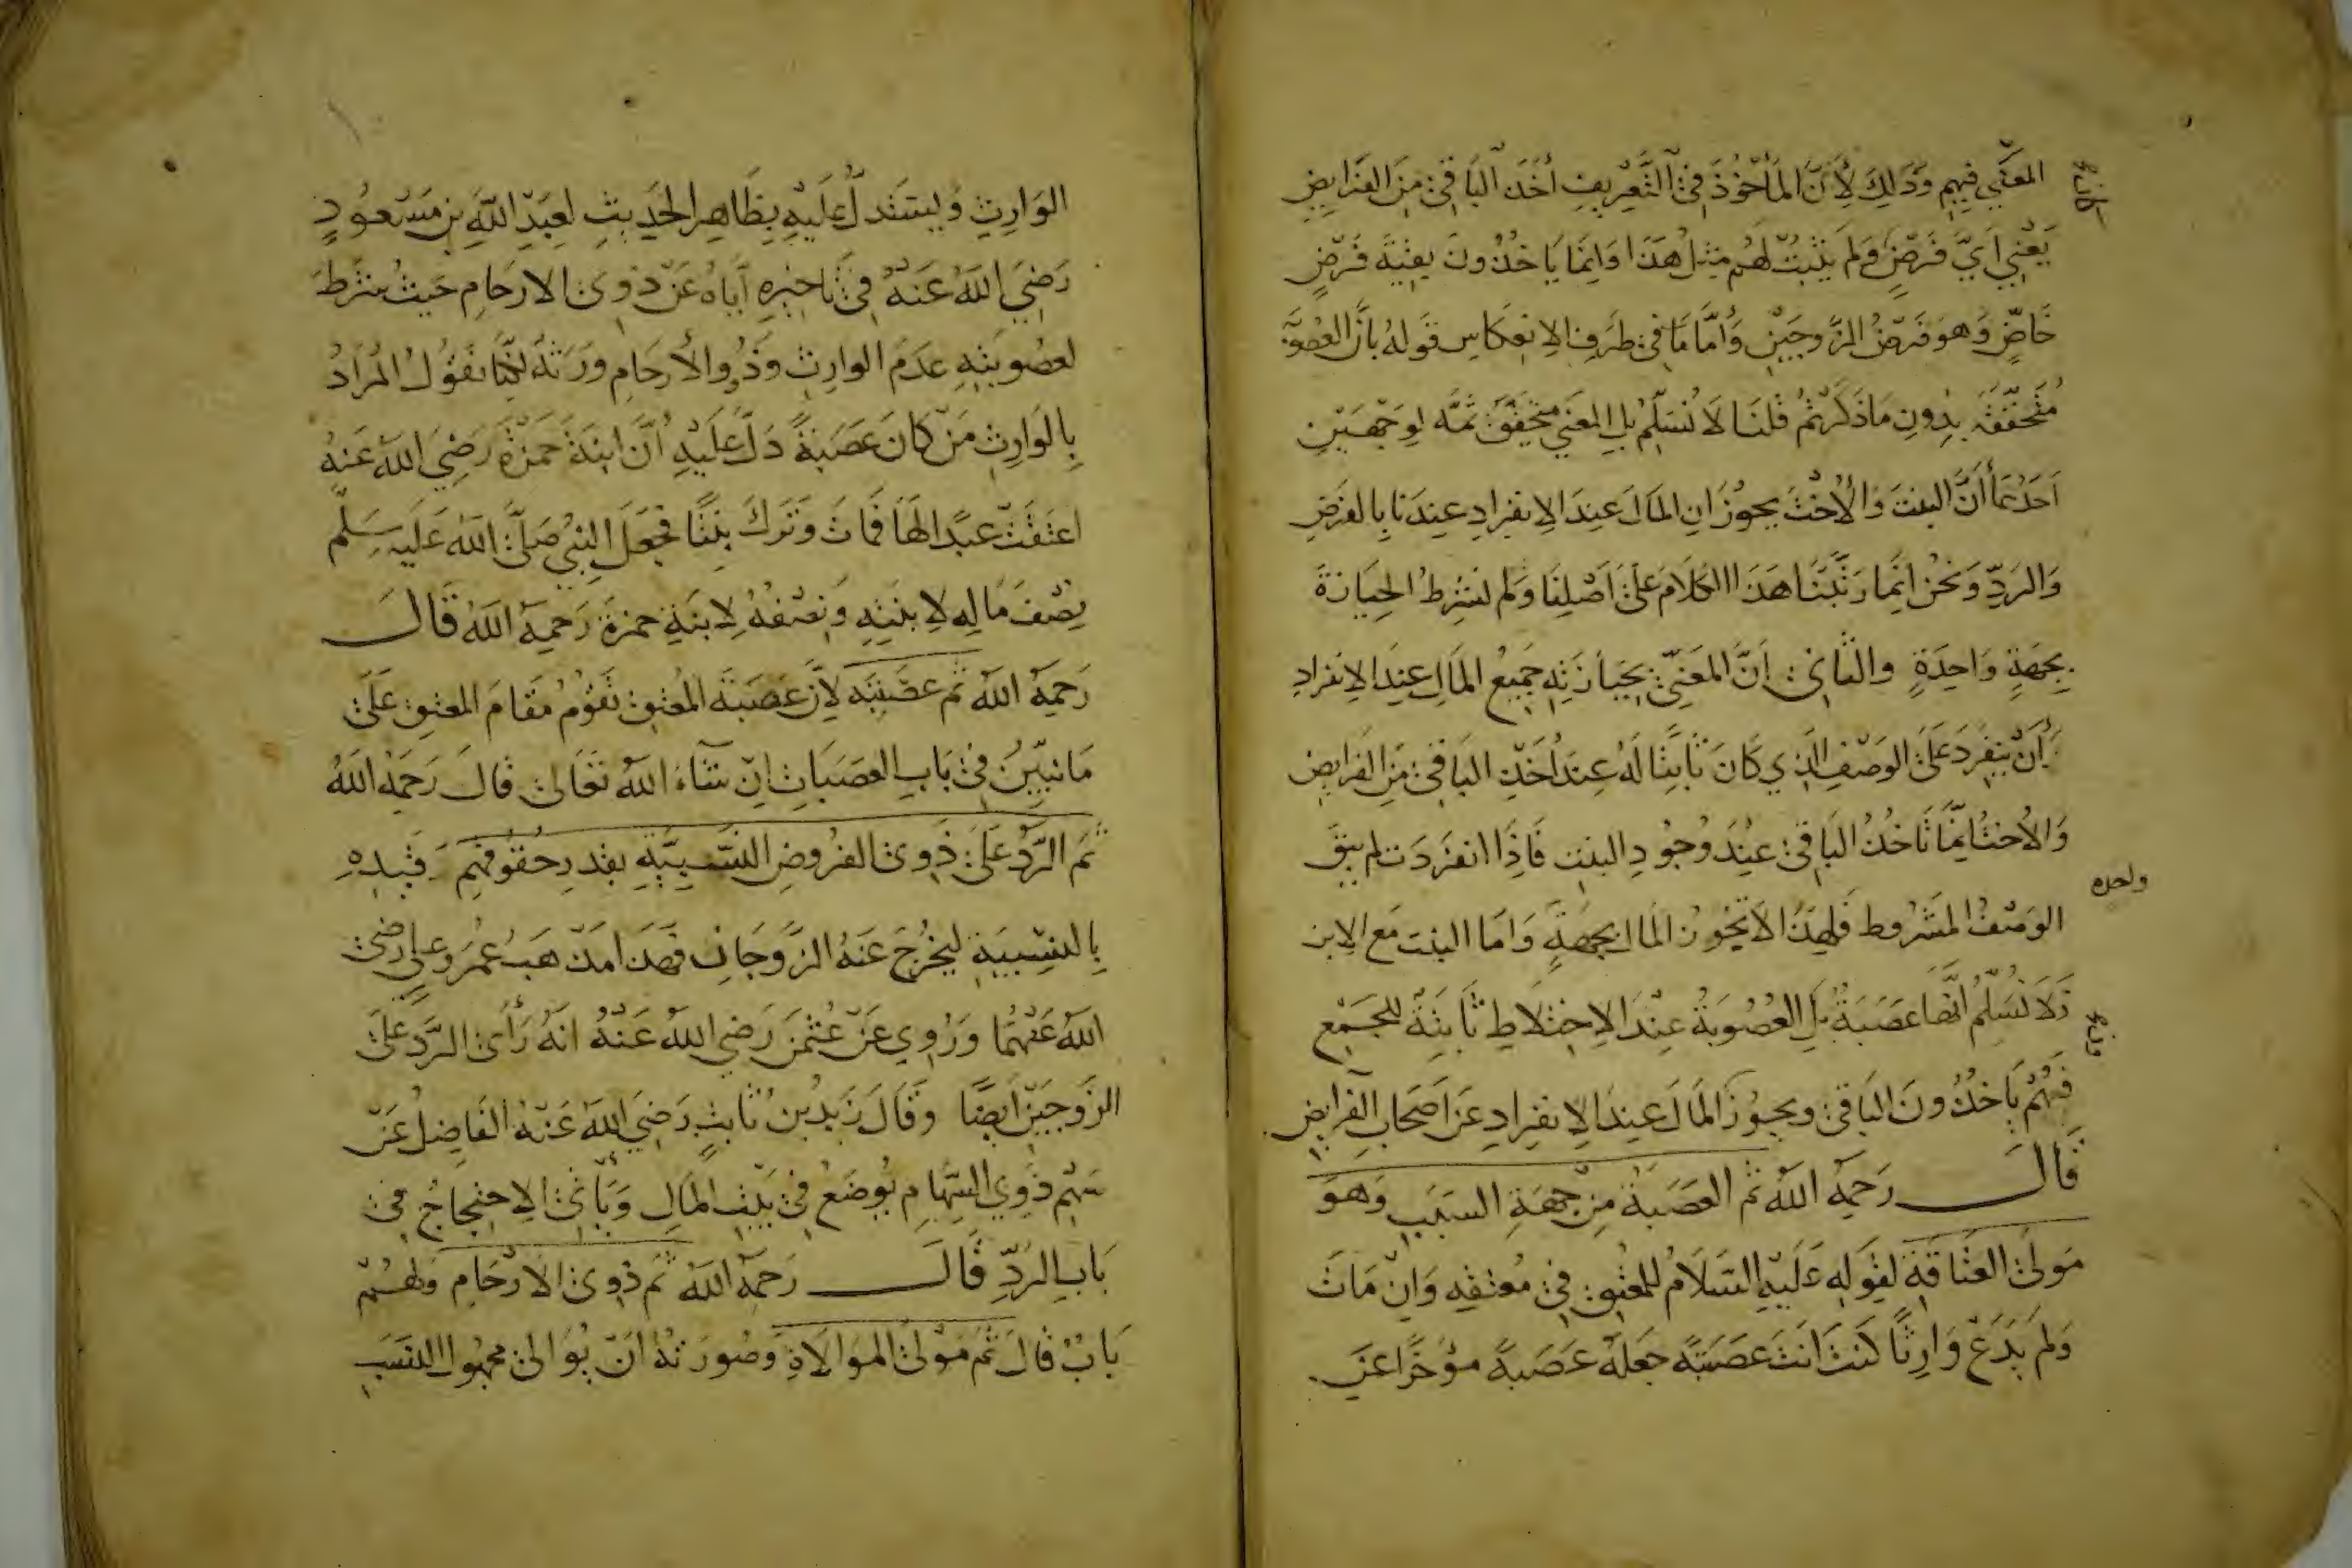 المعني فيهم وذلك لأن المأخوذ في التعريف أخذ الباقي من الفرايض
يعني أي فرض ولم يثبت لهم مثل هذا وانما ياخذون بقية فرض
خاص وهو فرض الزوجين وأما ما في طرف الانعكاس قوله بأن العصوبة
متحققة بدون ما ذكرتم قلنا لا نسلم بل المعني متحقق ثمه لوجهين
احدهما أن البنت والأخت يحوزان المال عند الانفراد عندنا بالفرض
والرد ونحن انما رتبنا هذا الكلام على اصلنا ولم نشرط الحيازة
بجهة واحدة والثاني أن المعني بحيازته جميع المال عند الانفراد
أن ينفرد على الوصف الذي كان ثابتا له عند أخذ الباقي من الفرايض
والأخت إنما تاخذ الباقي عند وجود البنت فاذا انفردت لم يبق
واحده
الوصف المشروط فلهذا لا تحوز المال بجهة واما البنت مع الابن
فلا نسلم انها عصبة بل العصوبة عند الاختلاط ثابتة للجميع
فهم ياخذون الباقي ويحوز المال عند الانفراد عن اصحاب الفرايض
قال رحمه الله ثم العصبة من جهة السبب وهو
مولى العتاقة لقوله عليه السلام للمعتق في معتقه وان مات
ولم يدع وارثا كنت انت عصبته جعله عصبة مؤخرا عن
الوارث وليستدل عليه بظاهر الحديث لعبد الله بن مسعود
رضي الله عنه في تاخيره اياه عن ذوي الارحام حيث شرط
لعصوبته عدم الوارث وذوو الأرحام ورثة لكنا نقول المراد
بالوارث من كان عصبة دل عليه أن ابنة حمزة رضي الله عنه
اعتقت عبدا لها فمات وترك بنتا فجعل النبي صلى الله عليه سلم
نصف ماله لابنته ونصفه لابنة حمزة رحمه الله قال
رحمه الله ثم عصبته لان عصبة المعتق تقوم مقام المعتق على
ما نبين في باب العصبات ان شاء الله تعالى قال رحمه الله
ثم الرد على ذوي الفروض النسبية بقدر حقوقهم قيده
بالنسبية ليخرج عنه الزوجان فهذا مذهب عمر وعلي رضي
الله عنهما وروي عن عثمن رضي الله عنه انه رأى الرد على
الزوجين أيضا وقال زيد بن ثابت رضي الله عنه الفاضل عن
سهم ذوي السهام يوضع في بيت المال ويأتي الاحتجاج في
باب الرد قال رحمه الله ثم ذوي الارحام ولهم
باب قال ثم مولى الموالاة وصورته أن يوالى مجهول النسب